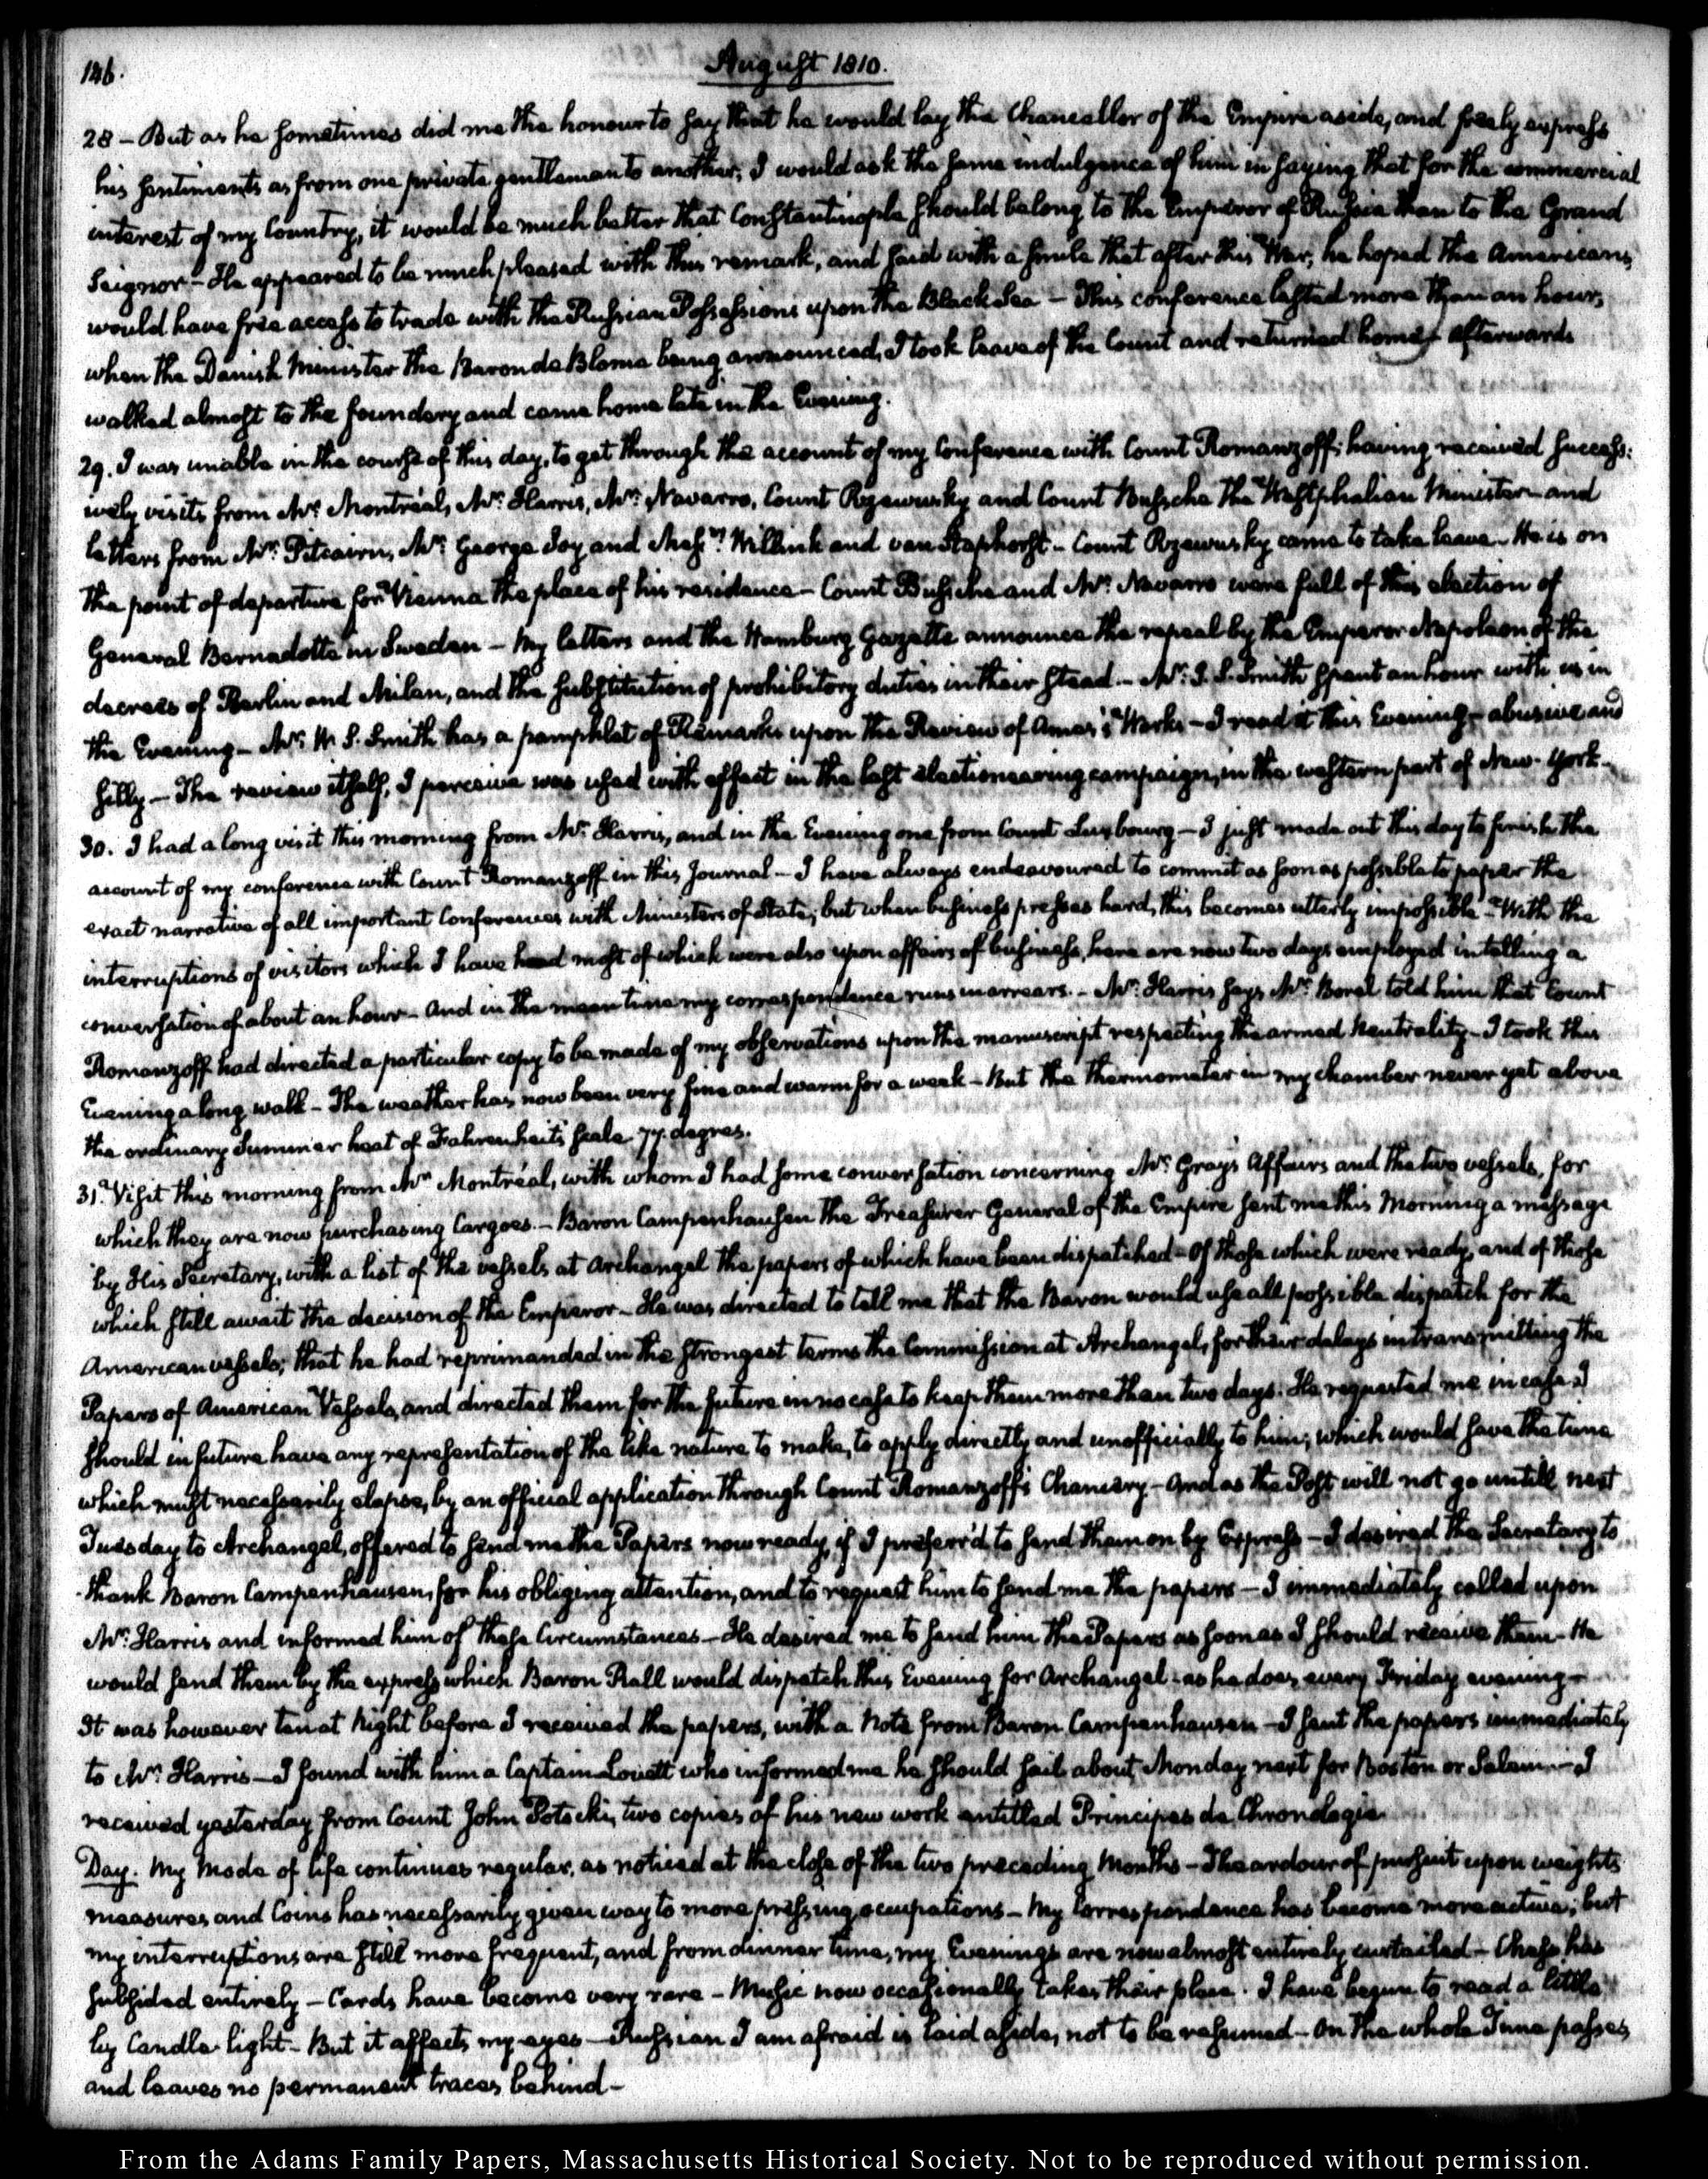 146.
August 1810.
28 - But as he sometimes did me the honour to say that he would lay the Chancellor of the Empire aside, and freely express
his sentiments as from one private gentleman to another; I would ask the same indulgence of him in saying that for the commercial
interest of my Country, it would be much better that Constantinople should belong to the Emperor of Russia than to the Grand
Seignor - He appeared to be much pleased with this remark, and said with a smile that after this War, he hoped the Americans
would have free access to trade with the Russian Possessions upon the Black Sea - This conference lasted more than an hour,
when the Danish Minister the Baron de Blome being announced, I took leave of the Count and returned home - afterwards
walked almost to the foundery and came home late in the Evening.
29. I was unable in the course of this day, to get through the account of my Conference with Count Romanzoff; having received success:
ively visits from Mr. Montréal, Mr. Harris, Mr. Navarro, Count Rzewusky and Count Bussche the Westphalian Minister - and
letters from Mr. Pitcairn, Mr. George Joy and Messrs. Willink and van Staphorst - Count Rzewusky came to take leave - He is on
the point of departure for Vienna the place of his residence - Count Bussche and Mr. Navarro were full of this election of
General Bernadotte in Sweden - My letters and the Hamburg Gazette announce the repeal by the Emperor Napoleon of the
decrees of Berlin and Milan, and the substitution of prohibitory duties in their stead - Mr. J. S. Smith spent an hour with us in
the Evening - Mr. W. S. Smith has a pamphlet of Remarks upon the Review of Ames's Works - I read it this Evening - abusive and
silly - The review itself, I perceive was used with effect in the last electioneering campaign, in the western part of New-York -
30. I had a long visit this morning from Mr. Harris, and in the Evening one from Count Luxbourg - I just made out this day to finish the
account of my conference with Count Romanzoff in this Journal - I have always endeavoured to commit as soon as possible to paper the
exact narrative of all important Conferences with Ministers of State; but when business presses hard, this becomes utterly impossible - With the
interruptions of visitors which I have had most of which were also upon affairs of business, here are now two days employed in telling a
conversation of about an hour - And in the mean time my correspondence runs in arrears. - Mr. Harris says Mr. Borel told him that Count
Romanzoff had directed a particular copy to be made of my observations upon the manuscript respecting the armed Neutrality - I took this
Evening a long walk - The weather has now been very fine and warm for a week - But the Thermometer in my chamber never yet above
the ordinary Summer heat of Fahrenheit's scale 77. degrees.
31. Visit this morning from Mr. Montréal, with whom I had some conversation concerning Mr. Gray's Affairs and the two vessels, for
which they are now purchasing Cargoes. - Baron Campenhausen the Treasurer General of the Empire sent me this Morning a message
by His Secretary, with a list of the vessels at Archangel the papers of which have been dispatched - Of those which were ready, and of those
which still await the decision of the Emperor - He was directed to tell me that the Baron would use all possible dispatch for the
American vessels; that he had reprimanded in the strongest terms the Commission at Archangel, for their delays in transmitting the
Papers of American Vessels, and directed them for the future in no case to keep them more than two days. He requested me in case I
should in future have any representation of the like nature to make, to apply directly and unofficially to him; which would save the time
which must necessarily elapse, by an official application through Count Romanzoff's Chancery - And as the Post will not go untill next
Tuesday to Archangel, offered to send me the Papers now ready, if I preferr'd to send them on by Express - I desired the Secretary to
thank Baron Campenhausen, for his obliging attention, and to request him to send me the papers - I immediately called upon
Mr. Harris and informed him of these Circumstances - He desired me to send him the Papers as soon as I should receive them - He
would send them by the express which Baron Rall would dispatch this Evening for Archangel - as he does every Friday evening -
It was however ten at Night before I received the papers, with a Note from Baron Campenhausen - I sent the papers immediately
to Mr. Harris - I found with him a Captain Lovett who informed me he should sail about Monday next for Boston or Salem - I
received yesterday from Count John Potocki, two copies of his new work entitled Principes de Chronologie
Day. My mode of life continues regular, as noticed at the close of the two preceding Months - The ardour of pursuit upon weights
measures and Coins has necessarily given way to more pressing occupations - My Correspondence has become more active; but
my interruptions are still more frequent, and from dinner time, my Evenings are now almost entirely curtailed - Chess has
subsided entirely - Cards have become very rare - Music now occasionally takes their place. I have begun to read a little
by Candle-light - But it affects my eyes - Russian I am afraid is laid aside, not to be resumed - On the whole Time passes
and leaves no permanent traces behind -
From the Adams Family Papers, Massachusetts Historical Society. Not to be reproduced without permission.